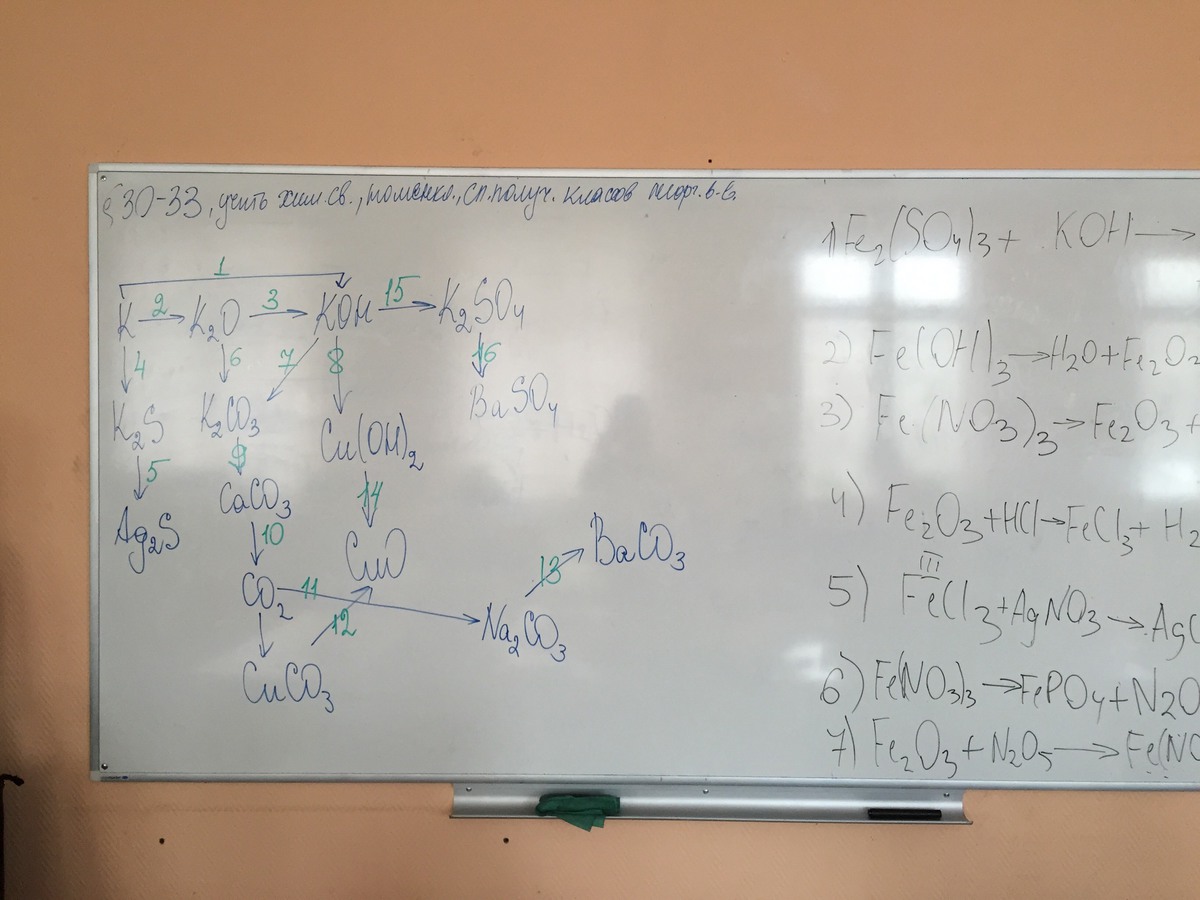 § 30-33, учить хим. св., номенкл., сп. получ. классов неорг. в-в.
1
K 2 K₂O 3 KOH 15 K₂SO₄
4 6 7 8 16
K₂S K₂CO₃ Cu(OH)₂ BaSO₄
5 9 14
Ag₂S CaCO₃ CuO BaCO₃
10 13
CO₂ 11 Na₂CO₃
12
CuCO₃
1) Fe₂(SO₄)₃ + KOH →
2) Fe(OH)₃ → H₂O + Fe₂O₂
3) Fe(NO₃)₃ → Fe₂O₃ +
4) Fe₂O₃ + HCl → FeCl₃ + H₂
III
5) FeCl₃ + AgNO₃ → AgC
6) Fe(NO₃)₃ → FePO₄ + N₂O
7) Fe₂O₃ + N₂O₅ → Fe(NO